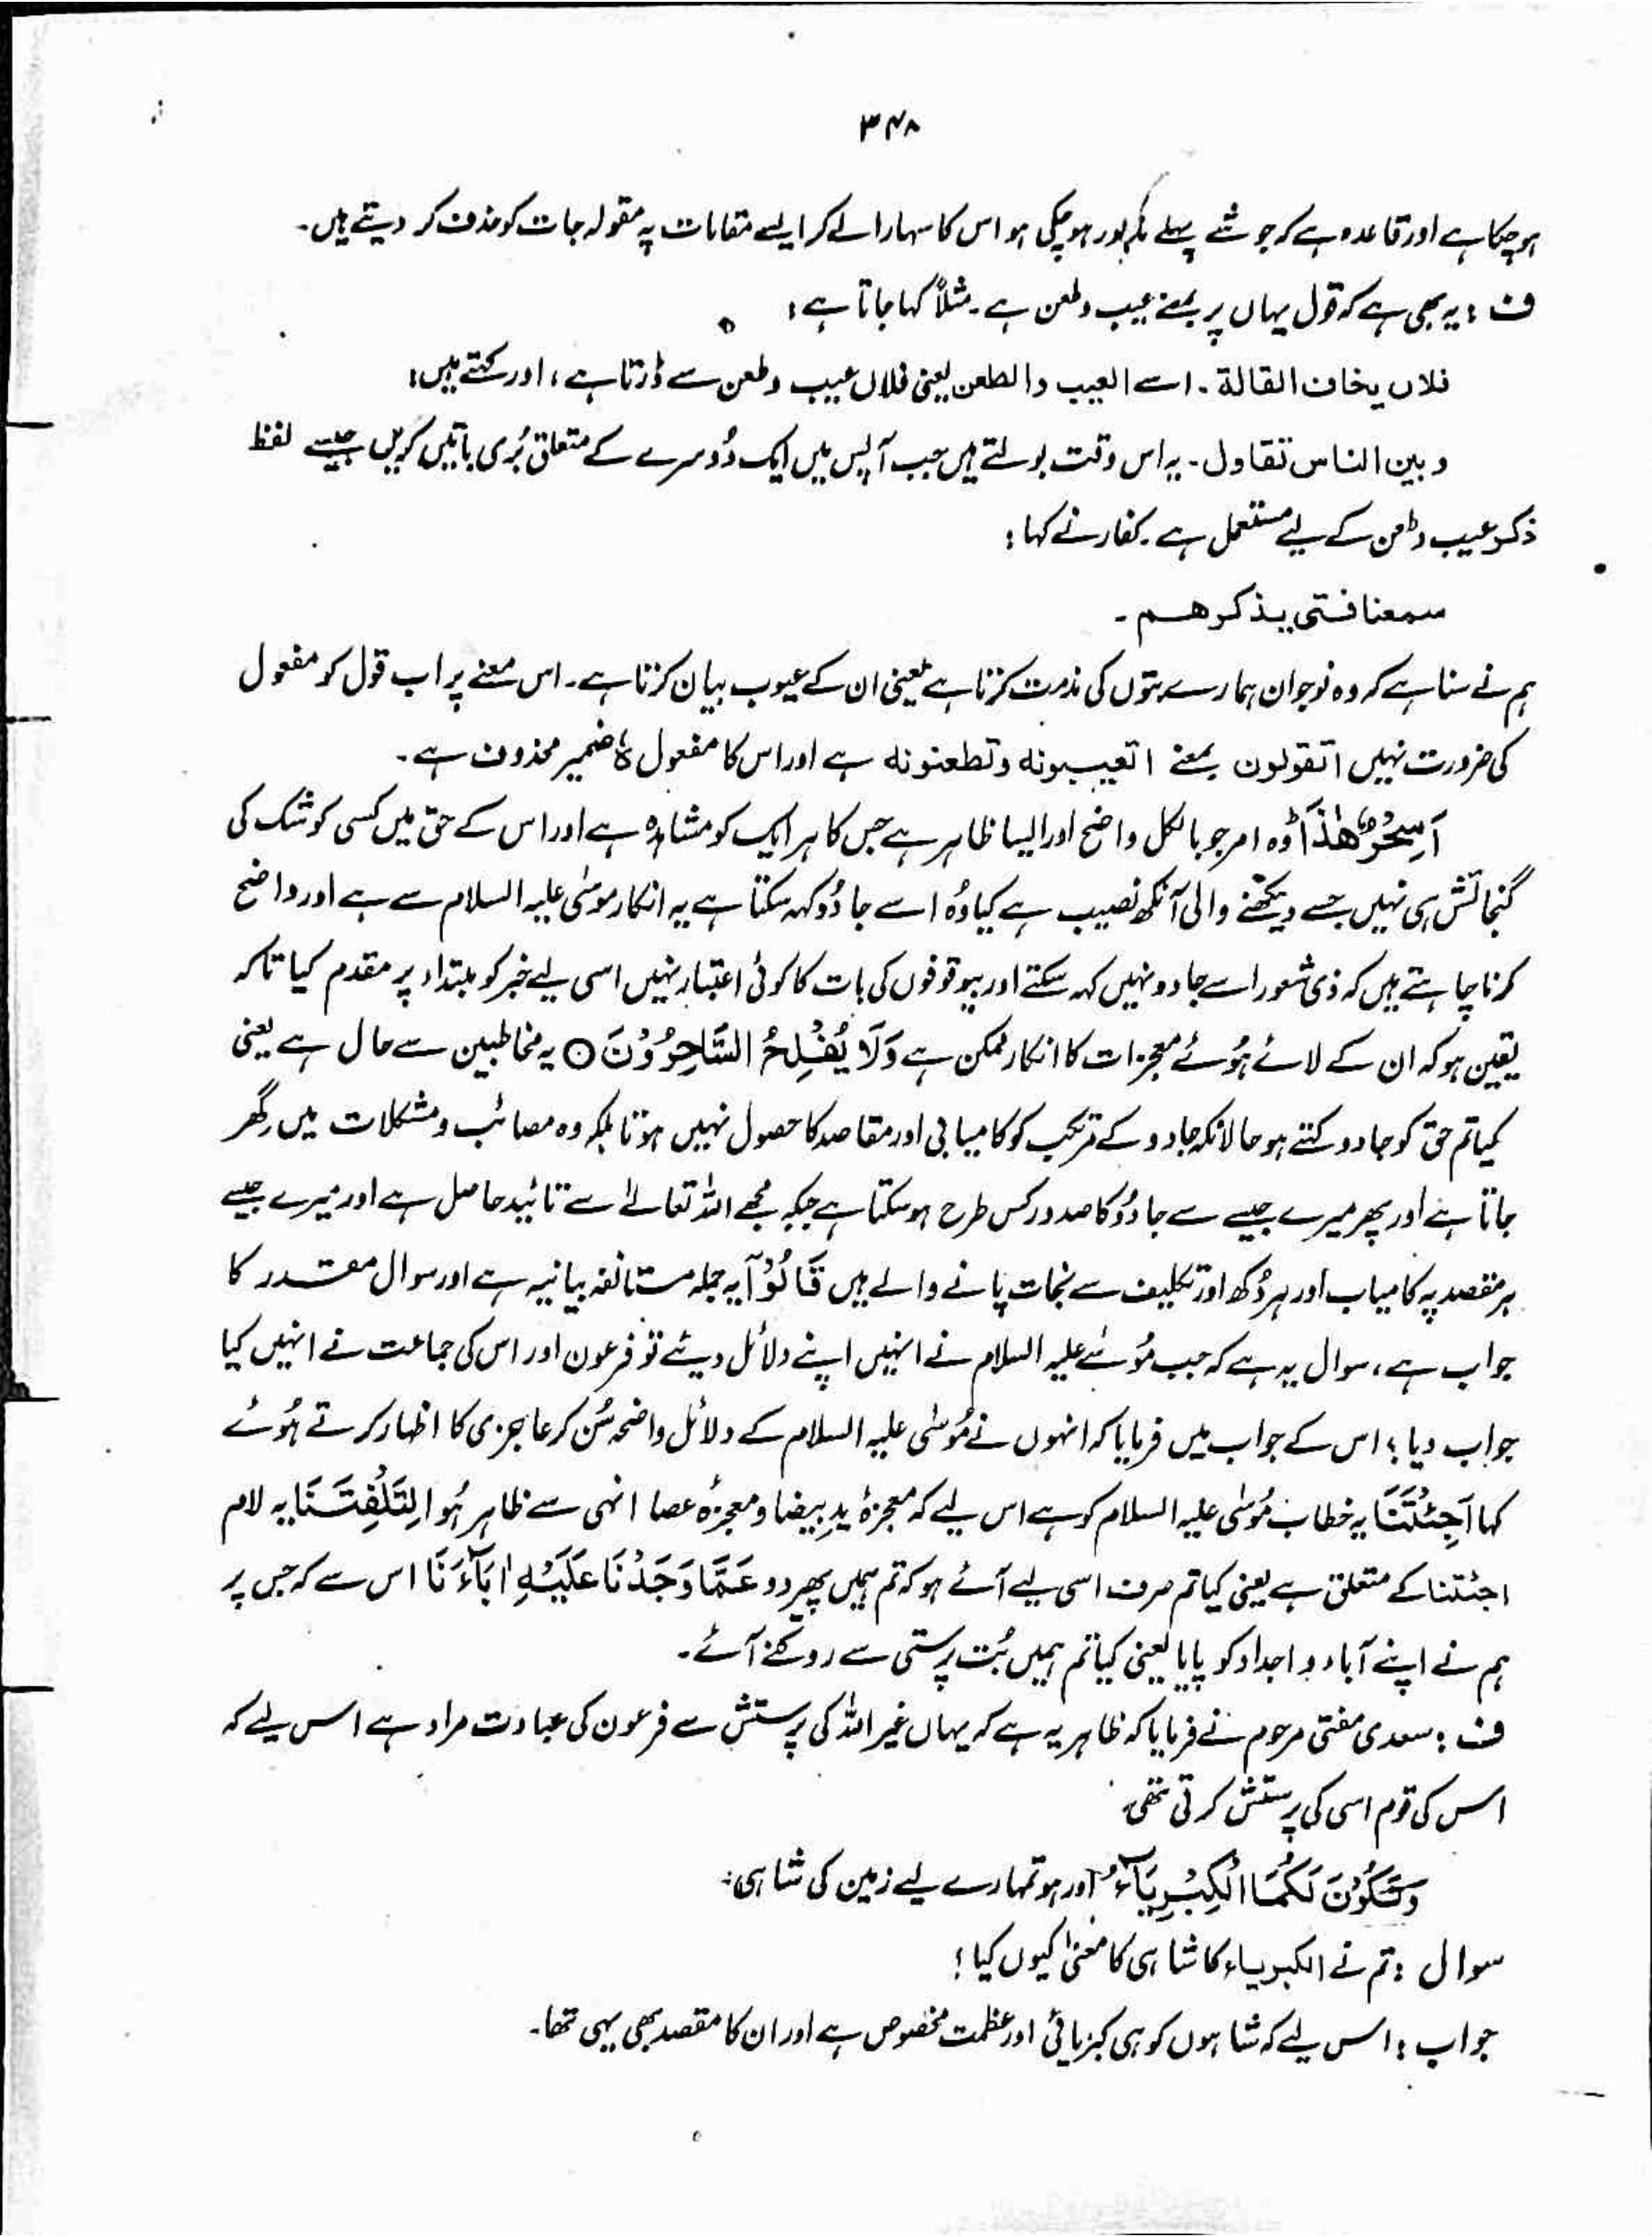 ۳۴۸
ہو چکا ہے اور قاعدہ ہے کہ جو شے پہلے مذکور ہو چکی ہو اس کا سہارا لے کر ایسے مقامات پہ مقولہ جات کو حذف کر دیتے ہیں۔
ف : یہ بھی ہے کہ قول یہاں پر بمعنے عیب و طعن ہے ۔ مثلاً کہا جاتا ہے :
فلاں یخاف القالة ۔ اے العیب والطعن یعنی فلاں عیب و طعن سے ڈرتا ہے ، اور کہتے ہیں :
و بین الناس تقاول ۔ یہ اس وقت بولتے ہیں جب آپس میں ایک دُوسرے کے متعلق بُری باتیں کریں جیسے لفظ
ذکر عیب و طعن کے لیے مستعمل ہے ۔ کفار نے کہا :
سمعنا فتی یذکرهم ۔
ہم نے سنا ہے کہ وہ نوجوان ہمارے بتوں کی مذمت کرتا ہے یعنی ان کے عیوب بیان کرتا ہے ۔ اس معنے پر اب قول کو مفعول
کی ضرورت نہیں اتقولون بمعنے اتعیبونه وتطعنونه ہے اور اس کا مفعول ہٗ ضمیر محذوف ہے ۔
اَسِحْرٌ هٰذَا ؕ وُہ امر جو بالکل واضح اور ایسا ظاہر ہے جس کا ہر ایک کو مشاہدہ ہے اور اس کے حق میں کسی کو شک کی
گنجائش ہی نہیں جسے دیکھنے والی آنکھ نصیب ہے کیا وُہ اسے جادُو کہہ سکتا ہے یہ انکار موسٰی علیہ السلام سے ہے اور واضح
کرنا چاہتے ہیں کہ ذی شعور اسے جادو نہیں کہہ سکتے اور بیوقوفوں کی بات کا کوئی اعتبار نہیں اسی لیے خبر کو مبتداء پر مقدم کیا تاکہ
یقین ہو کہ ان کے لائے ہُوئے معجزات کا انکار ممکن ہے وَلَا يُفْلِحُ السَّاحِرُوْنَ ○ یہ مخاطبین سے حال ہے یعنی
کیا تم حق کو جادو کہتے ہو حالانکہ جادو کے مرتکب کو کامیابی اور مقاصد کا حصول نہیں ہوتا بلکہ وہ مصائب و مشکلات میں گھر
جاتا ہے اور پھر میرے جیسے سے جادُو کا صدور کس طرح ہو سکتا ہے جبکہ مجھے اللہ تعالےٰ سے تائید حاصل ہے اور میرے جیسے
ہر مقصد پہ کامیاب اور ہر دُکھ اور تکلیف سے نجات پانے والے ہیں قَالُوْٓا یہ جملہ مستانفہ بیانیہ ہے اور سوال مقدر کا
جواب ہے ، سوال یہ ہے کہ جب مُوسٰے علیہ السلام نے انہیں اپنے دلائل دیئے تو فرعون اور اس کی جماعت نے انہیں کیا
جواب دیا ؛ اس کے جواب میں فرمایا کہ انہوں نے مُوسٰی علیہ السلام کے دلائل واضحہ سُن کر عاجزی کا اظہار کرتے ہُوئے
کہا اَجِئْتَنَا یہ خطاب مُوسٰی علیہ السلام کو ہے اس لیے کہ معجزۂ یدِ بیضا و معجزۂ عصا انہی سے ظاہر ہُوا لِتَلْفِتَنَا یہ لام
اجئتنا کے متعلق ہے یعنی کیا تم صرف اسی لیے آئے ہو کہ تم ہمیں پھیر دو عَمَّا وَجَدْنَا عَلَيْهِ اٰبَآءَنَا اس سے کہ جس پر
ہم نے اپنے آباء و اجداد کو پایا یعنی کیا تم ہمیں بُت پرستی سے روکنے آئے ۔
ف : سعدی مفتی مرحوم نے فرمایا کہ ظاہر یہ ہے کہ یہاں غیر اللہ کی پرستش سے فرعون کی عبادت مراد ہے اس لیے کہ
اس کی قوم اسی کی پرستش کرتی تھی ۔
وَتَكُوْنَ لَكُمَا الْكِبْرِيَآءُ اور ہو تمہارے لیے زمین کی شاہی :
سوال : تم نے الکبریاء کا شاہی کا معنٰی کیوں کیا !
جواب : اس لیے کہ شاہوں کو ہی کبریائی اور عظمت مخصوص ہے اور ان کا مقصد بھی یہی تھا ۔